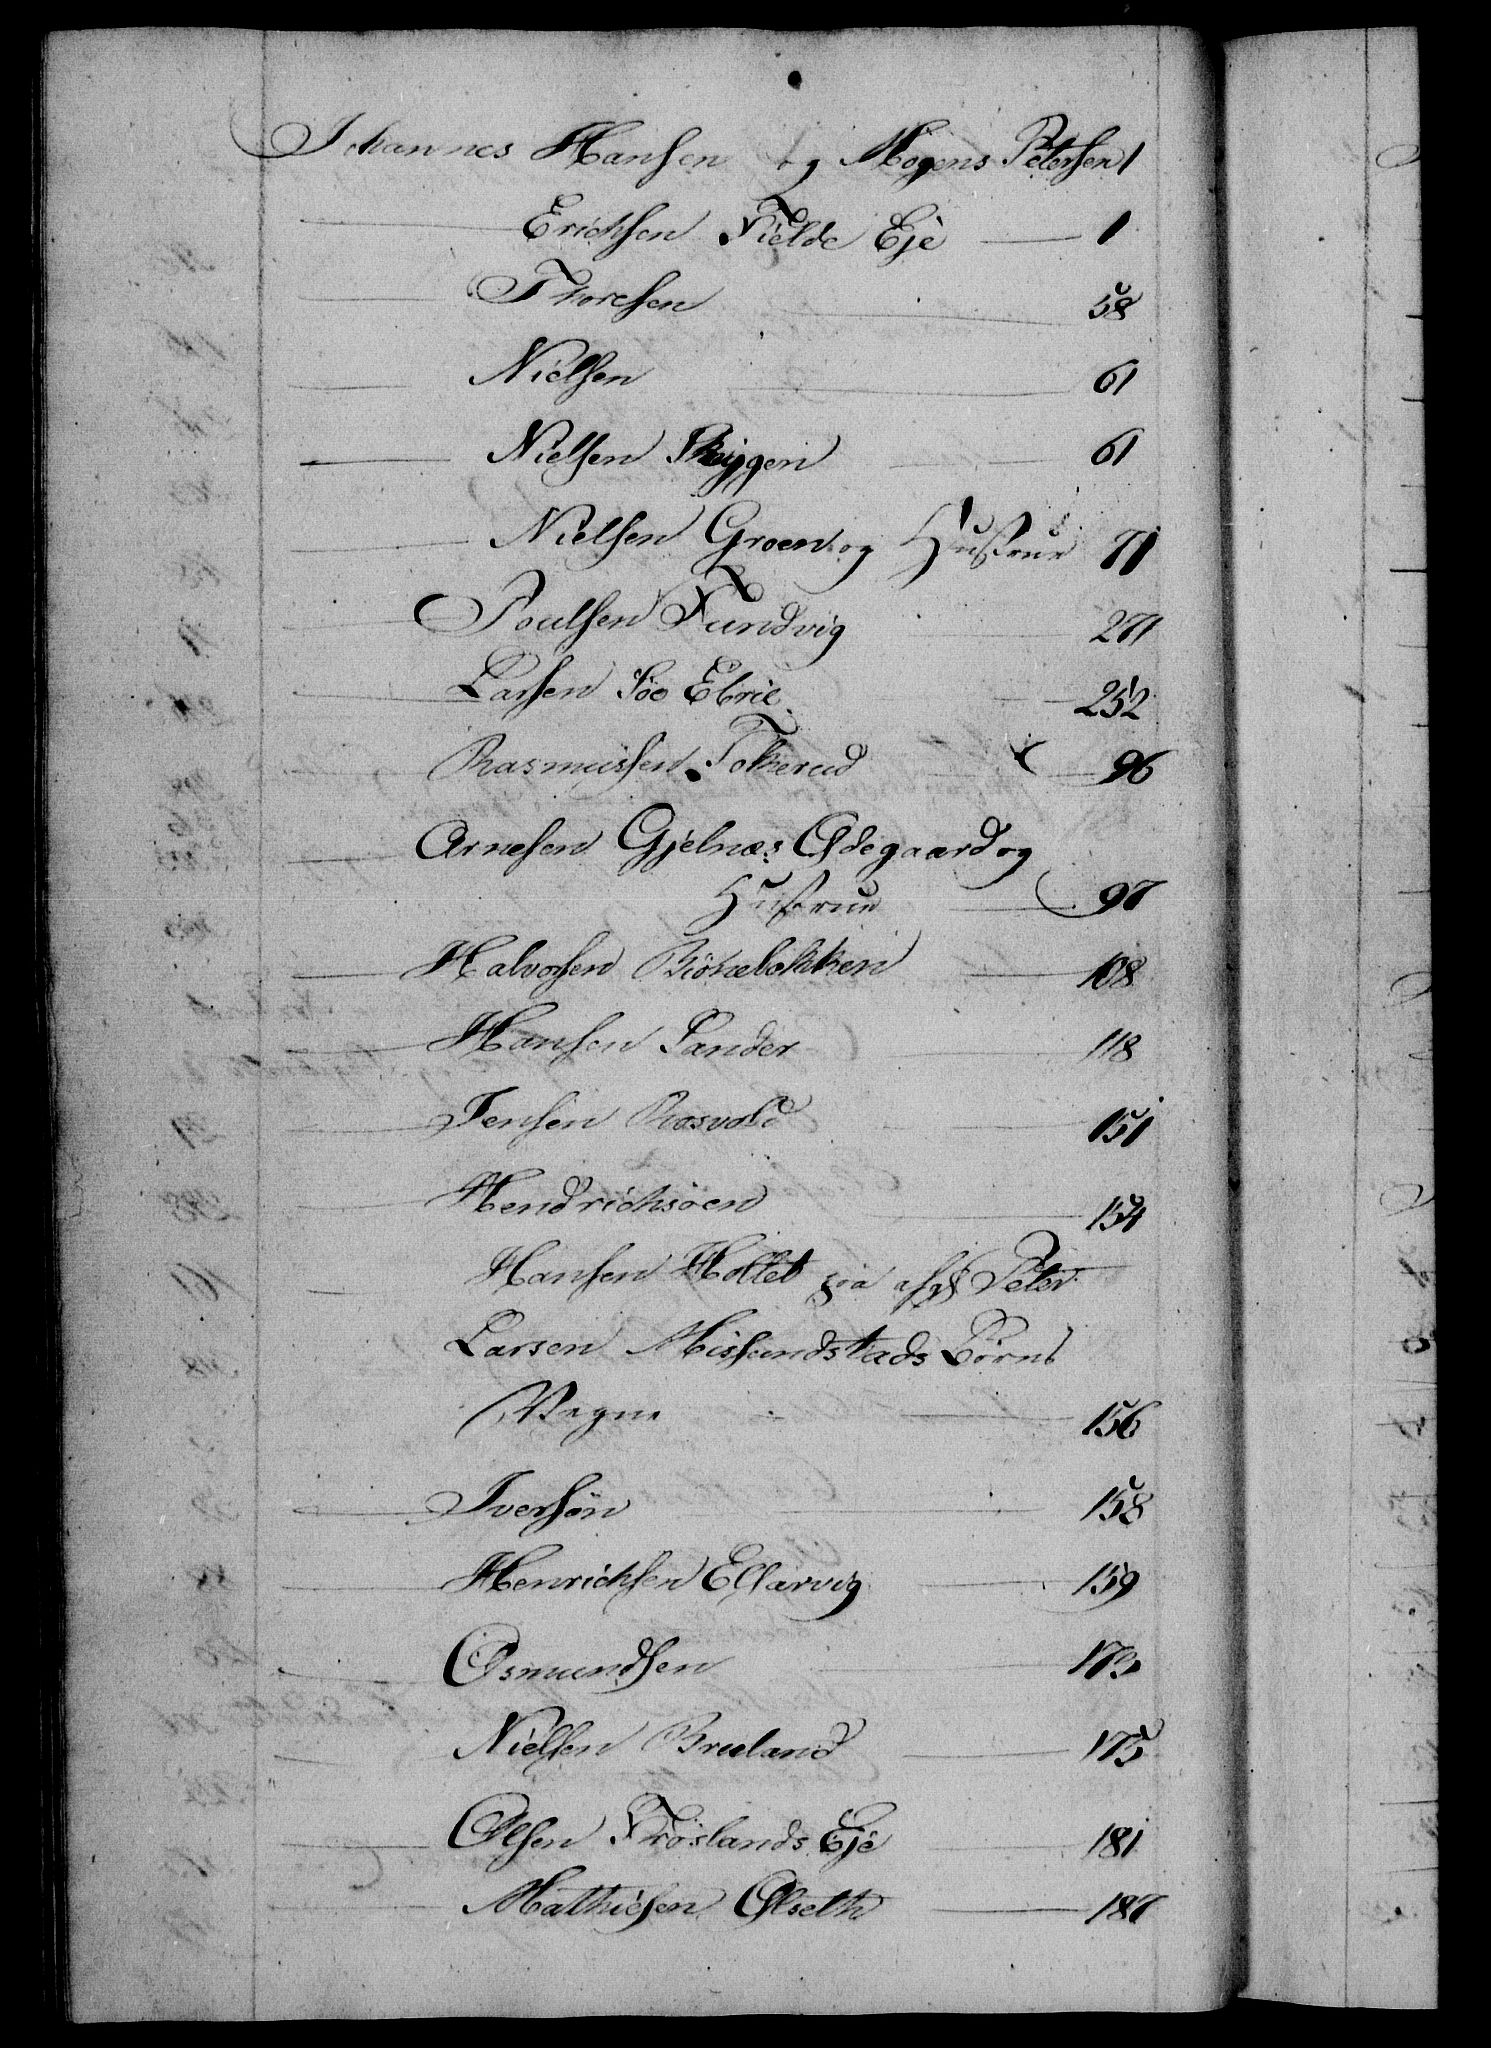 Johannes Hansen og Mogens Petersen 1
Erichsen Fielde Eje 1
Thoresen 58
Nielsen 61
Nielsen Skyggen 61
Nielsen Groen og Hustrue 71
Poulsen Tundvig 271
Larsen Søe Ebrie 252
Rasmussen Tokerud 96
Arnesen Gjelnæs Ødegaard og
Hustrue 97
Halvorsen Biönelökken 108
Hansen Sander 118
Jensen Rosvold 151
Hendrichsøen 154
Hansen Hollet paa afg Peter
Larsen Missundstads Børns
Vegne 156
Iversøn 158
Henrichsen Ellarvig 159
Osmundsen 173
Nielsen Breeland 175
Olsen Frøslands Eje 181
Mathiesen Olseth 187